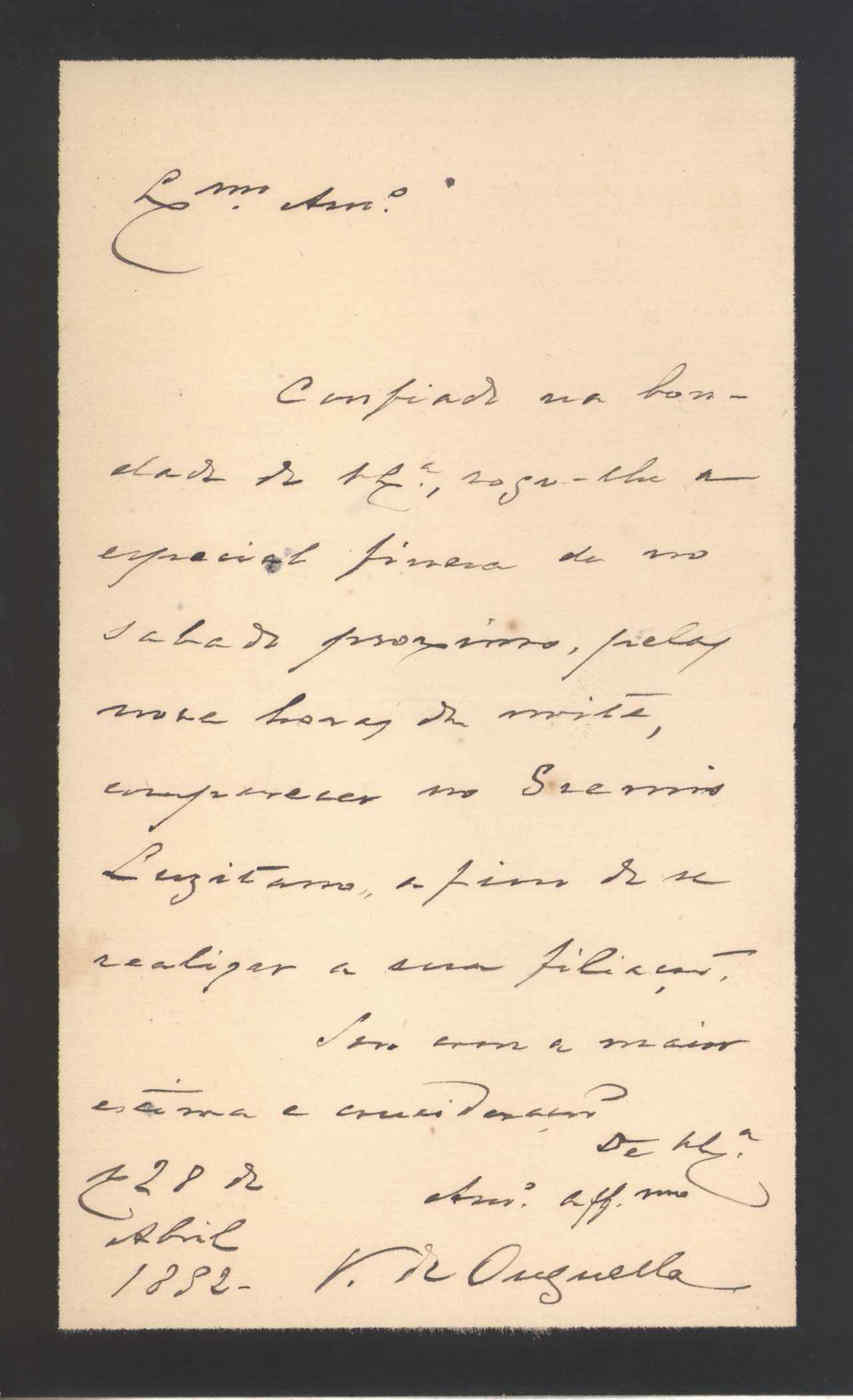 Exmo. Amo.
Confiado na bon-
dade de V. Exa., rogo-lhe a
especial fineza de no
sabado proximo, pelas
nove horas da noite,
comparecer no Gremio
Luzitano, a fim de se
realizar a sua filiação.
Sou com a maior
estima e consideração
De V. Exa.
Amo. affmo
28 de
Abril
1892-
V. de Ouguella